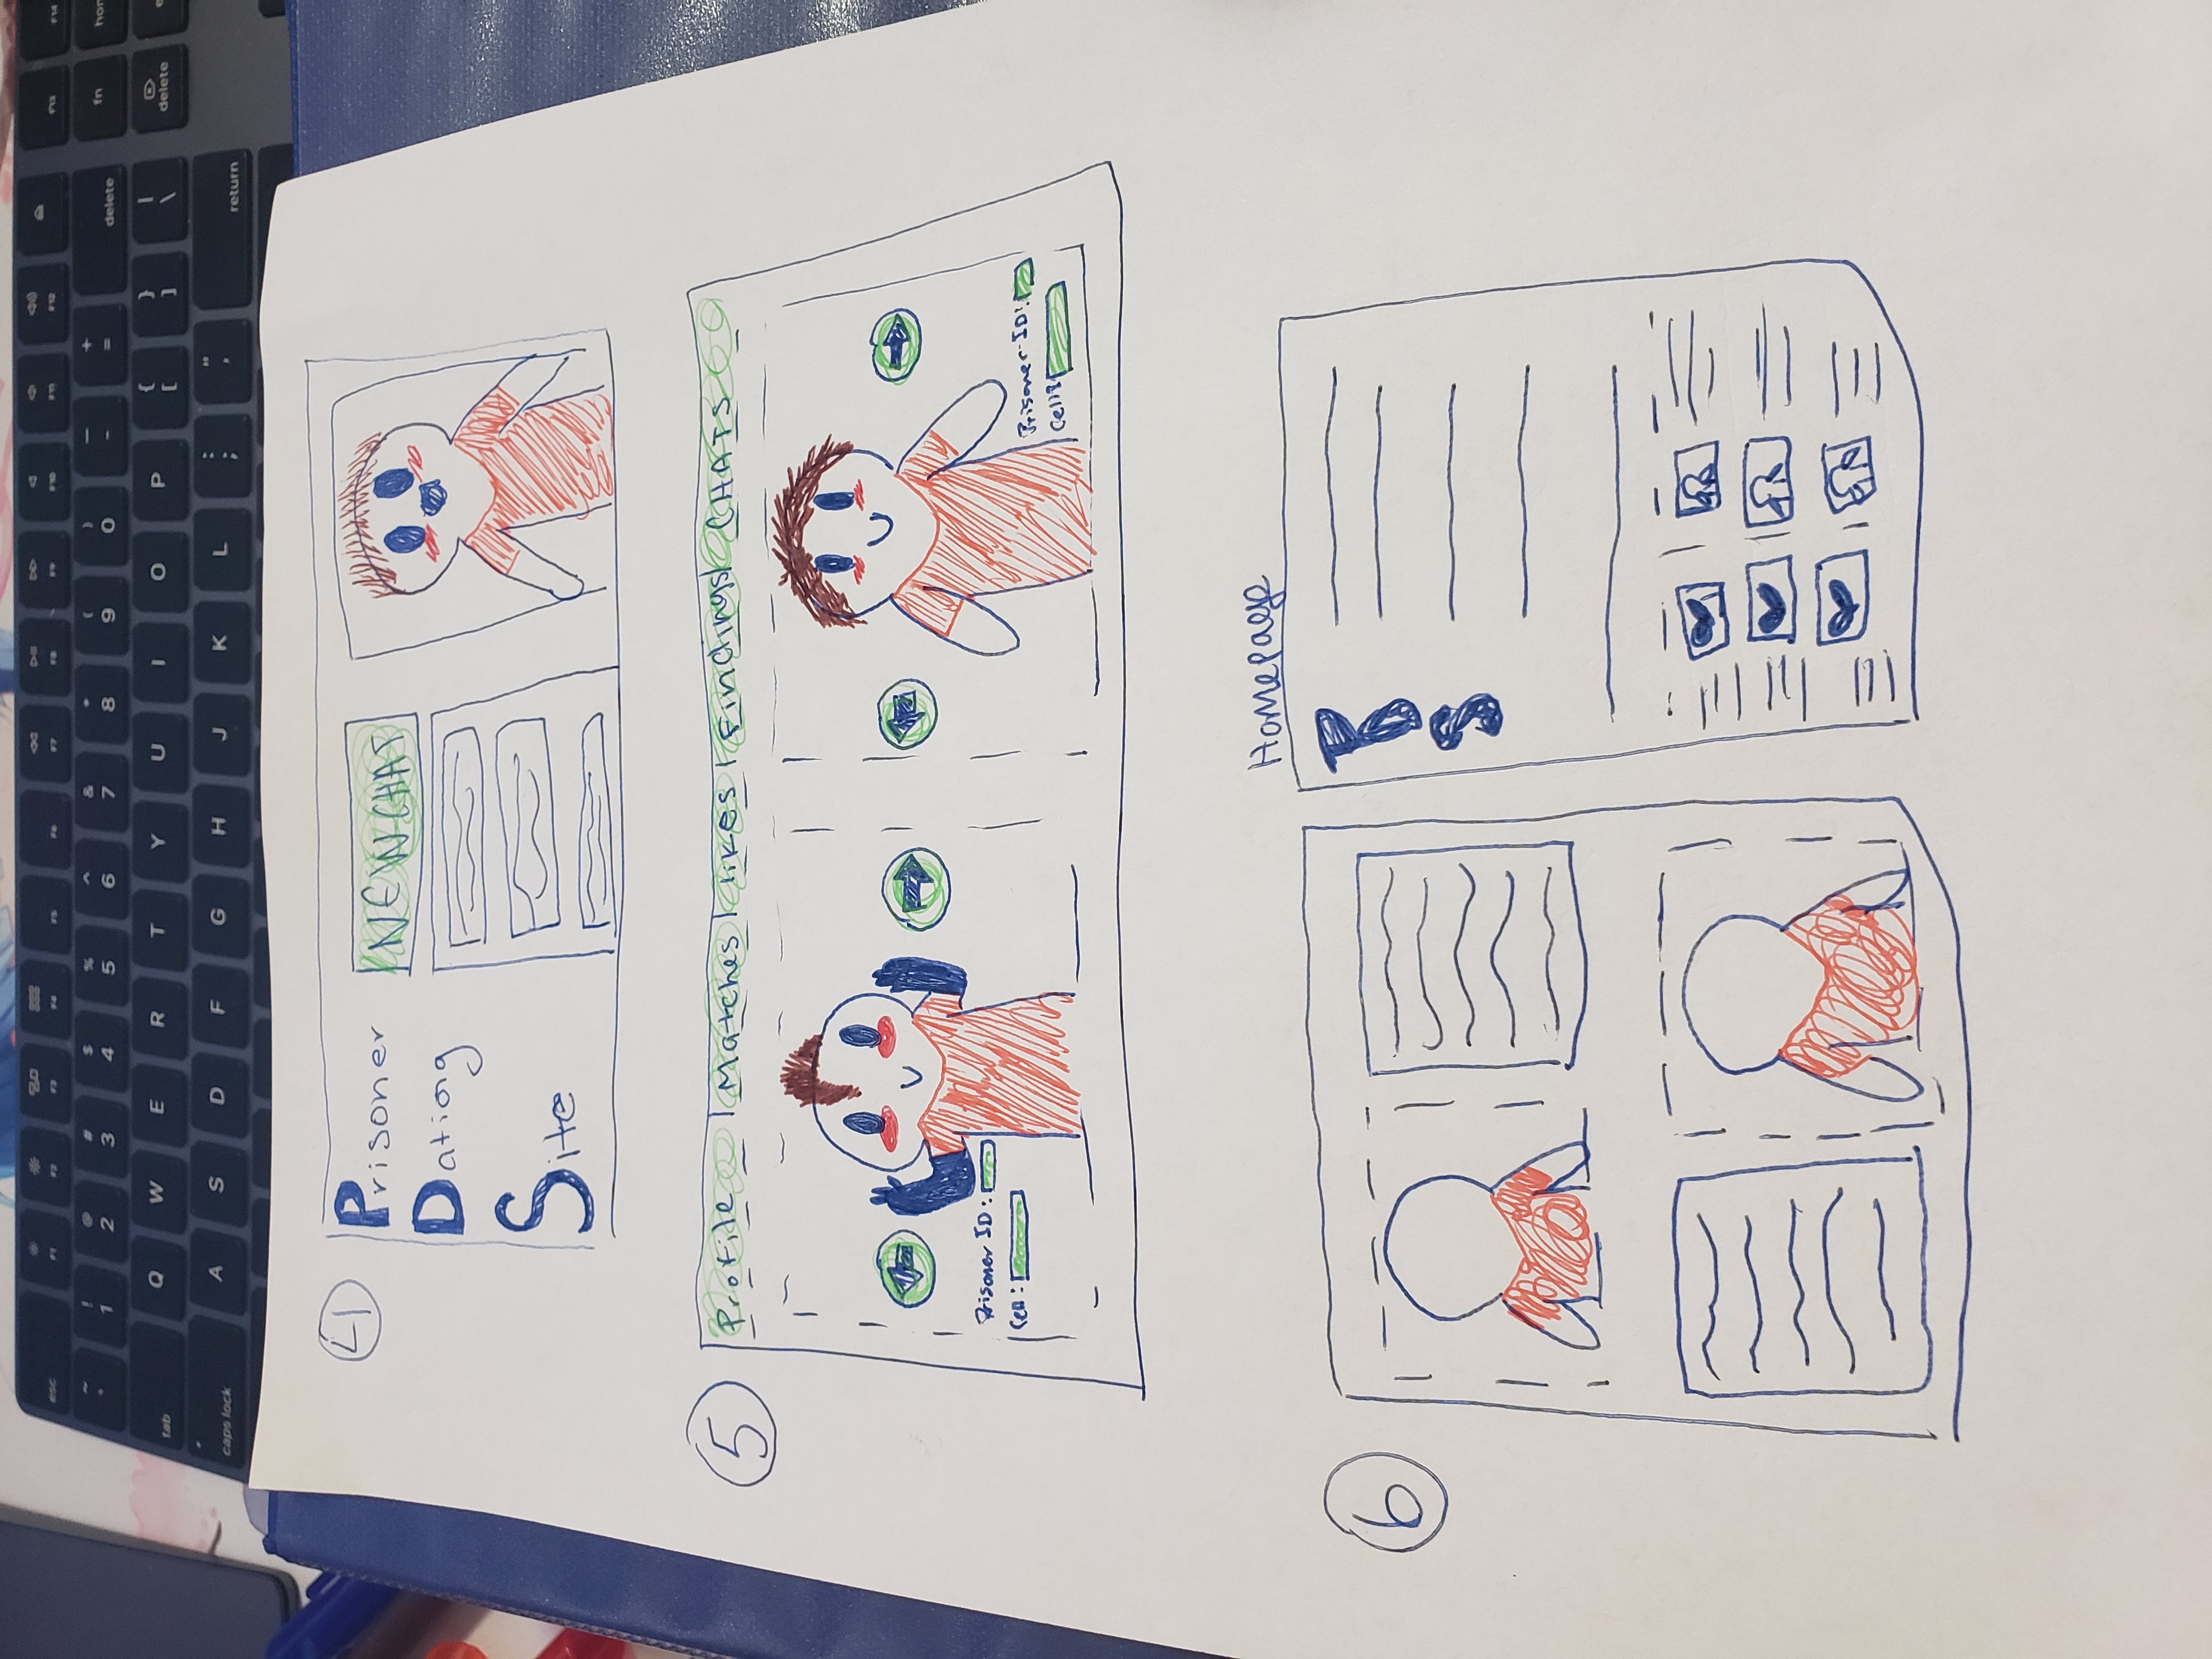 esc F1 F2 F3 F4 F5 F6 F7 F8 F9 F10 F11 F12 F13 F14
~ ! @ # $ % ^ & * ( ) — +
` 1 2 3 4 5 6 7 8 9 0 - = delete fn hom
tab Q W E R T Y U I O P { [ } ] | \ delete e
caps lock A S D F G H J K L : ; " ' return
4
Prisoner
Dating
Site
NEW CHAT
5
Profile | Matches | likes | Findings | CHATS
Prisoner ID:
Cell:
Prisoner ID:
Cell:
6
Homepage
P
D
S